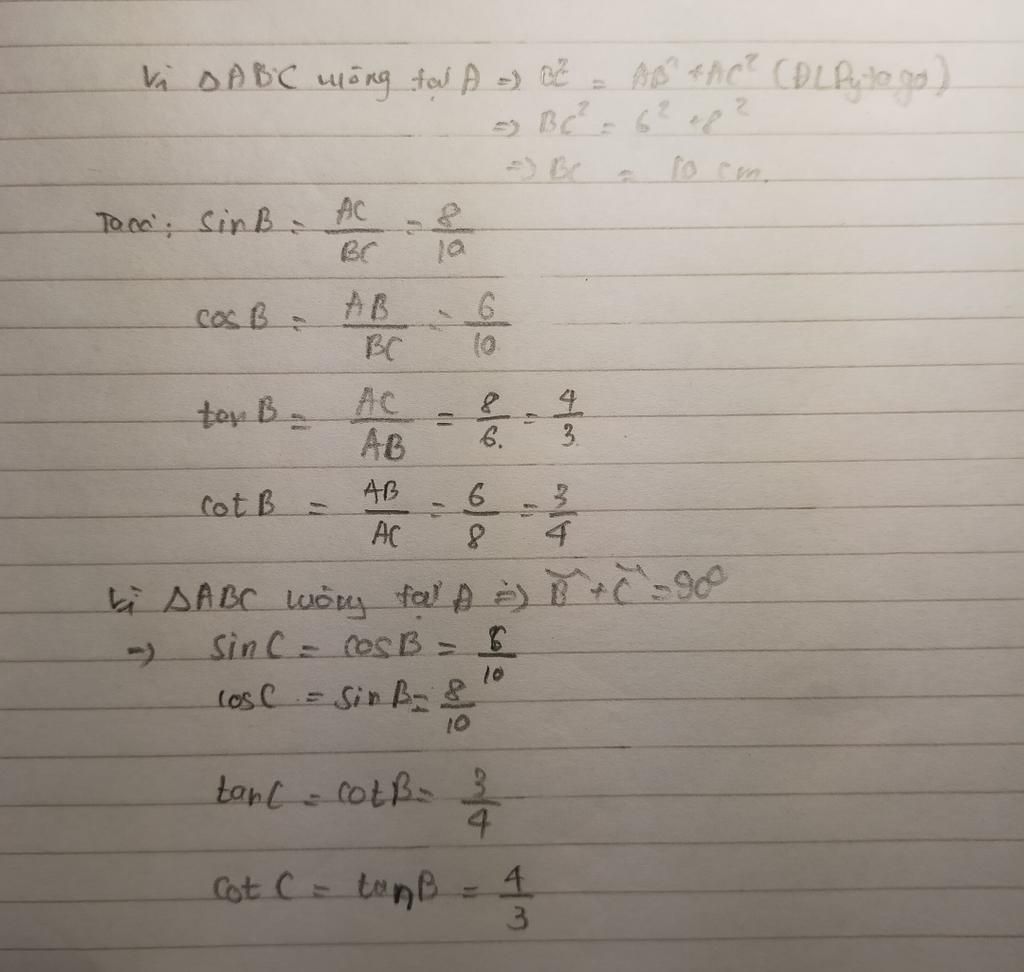 Vì ΔABC vuông tại A => BC² = AB² + AC² (ĐL Pytago)
=> BC² = 6² + 8²
=> BC = 10 cm.
Ta có: sin B = AC/BC = 8/10
cos B = AB/BC = 6/10
tan B = AC/AB = 8/6 = 4/3
cot B = AB/AC = 6/8 = 3/4
Vì ΔABC vuông tại A => B̂ + Ĉ = 90°
=> sin C = cos B = 6/10
cos C = sin B = 8/10
tan C = cot B = 3/4
cot C = tan B = 4/3